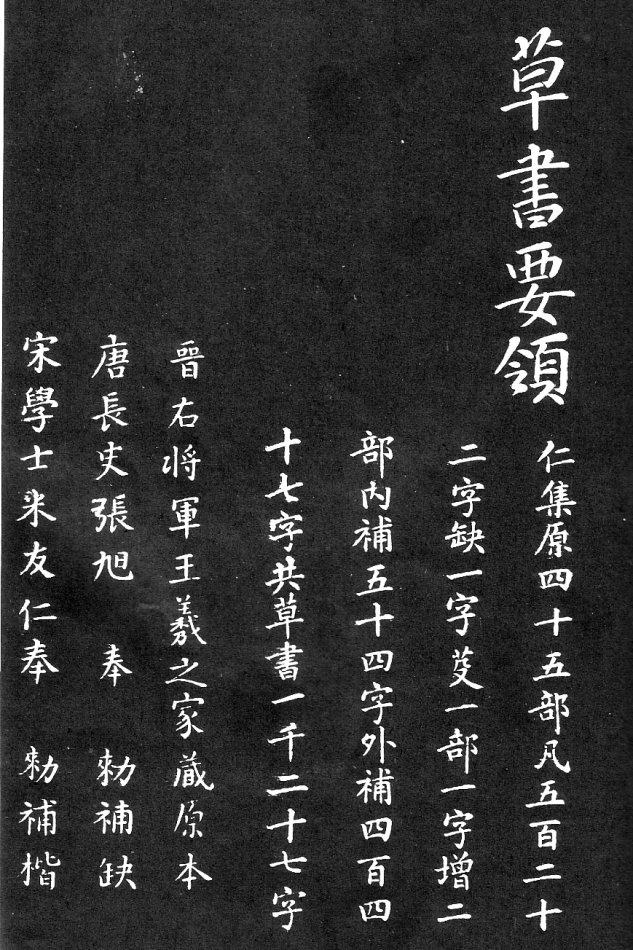 草書要領
仁集原四十五部凡五百二十
二字缺一字芟一部一字增二
部內補五十四字外補四百四
十七字共草書一千二十七字
晉右将軍王羲之家藏原本
唐長史張旭 奉 勑補缺
宋學士米友仁奉 勑補楷